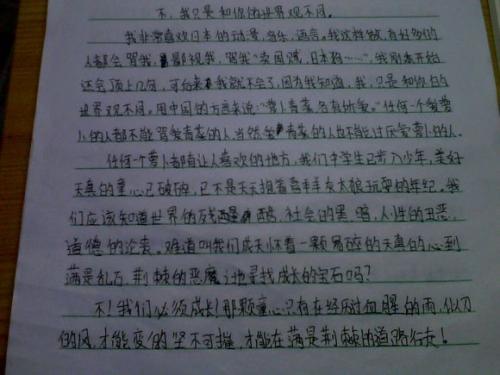 不,我只是和你的世界观不同。
我非常喜欢日本的动漫,音乐,语言。我这样做,有好多的
人都会骂我,鄙视我,骂我“卖国贼,日本狗……”,我刚开始
还会顶上几句,可后来我就不会了,因为我知道,我只是和你的
世界观不同。用中国的方言来说:“萝卜青菜,各有所爱。”任何一个爱萝
卜的人都不能骂爱青菜的人,当然爱青菜的人也不能讨厌爱萝卜的人。
任何一个萝卜都有让人喜欢的地方,我们中学生已步入少年,美好
天真的童心已破碎,已不是天天抱着喜羊羊灰太狼玩耍的年纪。我
们应该知道世界的残酷,社会的黑暗,人性的丑恶,
道德的沦丧。难道叫我们成天怀着一颗易碎的天真的心到
满是乱石,荆棘的恶魔之地寻找成长的宝石吗?
不!我们必须成长!那颗童心只有在经历过血腥的雨,似刀
的风,才能变的坚不可摧,才能在满是荆棘的道路行走!